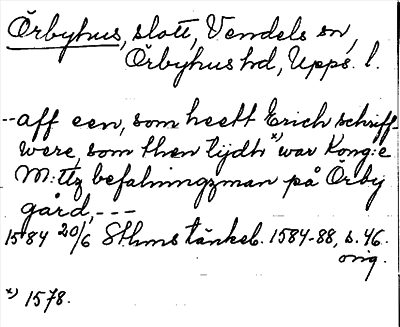 Örbyhus, slott, Vendels sn,
Örbyhus hd, Upps. l.
--aff een, som heett Erich schriff-
were, som then tijdh x) war Kong:e
M:ttz befalningzman på Örby
gård, ---
1584 20/6 Sthms tänkeb. 1584-88, s. 46.
orig.
x) 1578.